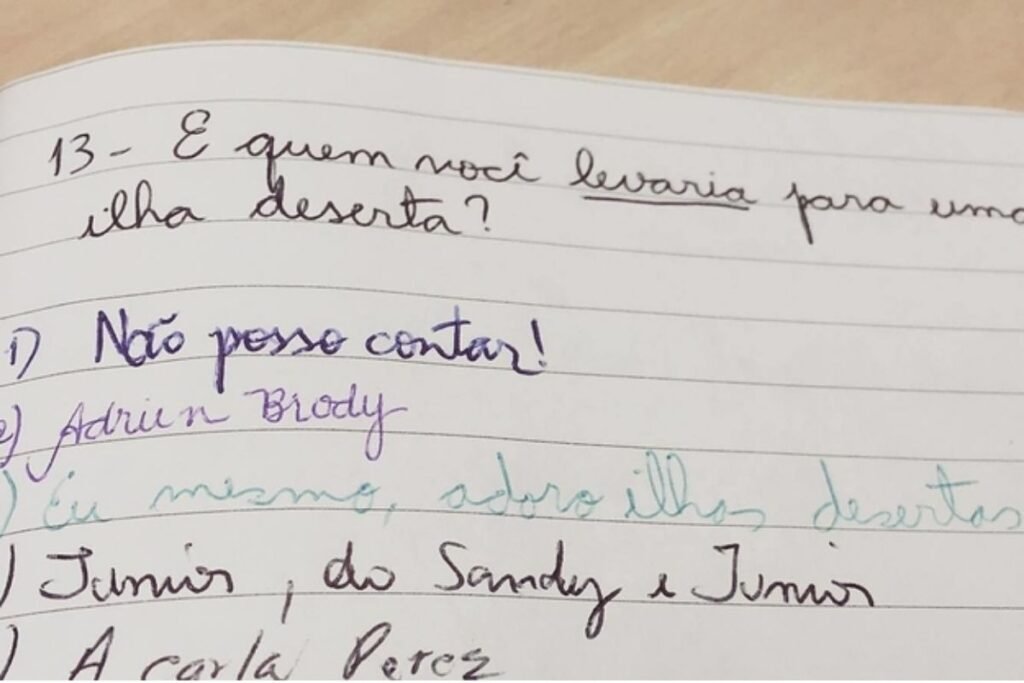 13- E quem você levaria para uma
ilha deserta?
1) Não posso contar!
2) Adrien Brody
) Eu mesmo, adoro ilhas desertas
) Junior, do Sandy e Junior
) A carla Perez